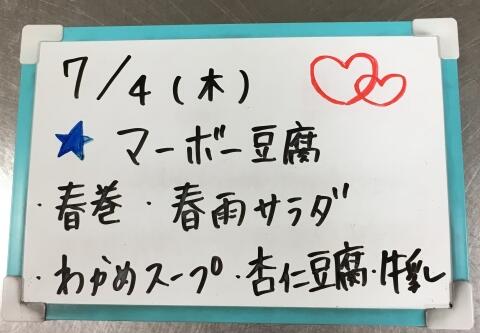 7/4(木)
★ マーボー豆腐
・春巻・春雨サラダ
・わかめスープ・杏仁豆腐・牛乳